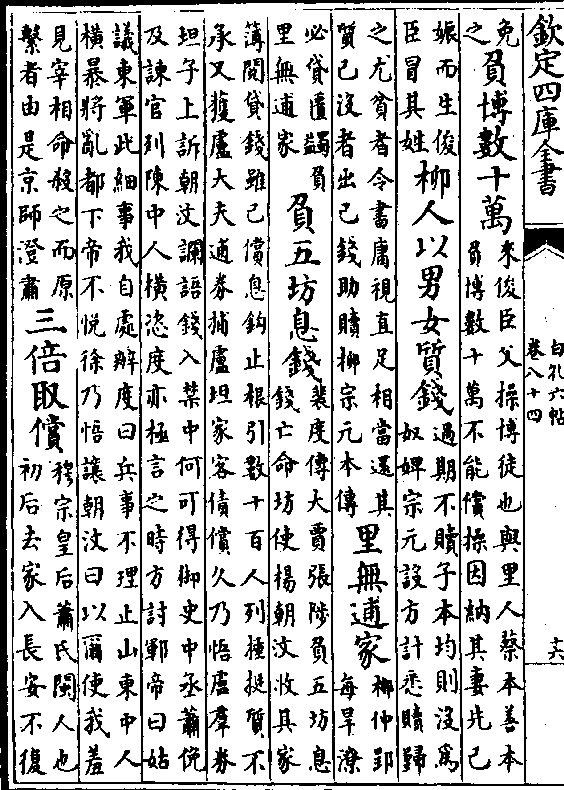 欽定四庫全書
白孔六帖
卷八十四
十六
免
之
負博數十萬
來俊臣父操博徒也與里人蔡本善本
負博數十萬不能償操因納其妻先已
娠而生俊
臣冒其姓
柳人以男女質錢
過期不贖子本均則沒為
奴婢宗元設方計悉贖歸
之尤貧者令書庸視直足相當還其
質已沒者出已錢助贖柳宗元本傳
里無逋家
柳仲郢
每旱潦
必貸匱蠲負
里無逋家
負五坊息錢
裴度傳大賈張陟負五坊息
錢亡命坊使楊朝汶收其家
薄閱貸錢雖已償息鉤止根引數十百人列箠挺質不
承又獲盧大夫逋券捕盧坦家客債償久乃悟盧羣券
坦子上訴朝汶讕語錢入禁中何可得御史中丞蕭俛
及諫官列陳中人橫恣度亦極言之時方討鄆帝曰姑
議東軍此細事我自處辦度曰兵事不理止山東中人
橫暴將亂都下帝不悅徐乃悟讓朝汶曰以爾使我羞
見宰相命殺之而原
繫者由是京師澄肅
三倍取償
穆宗皇后蕭氏閩人也
初后去家入長安不復